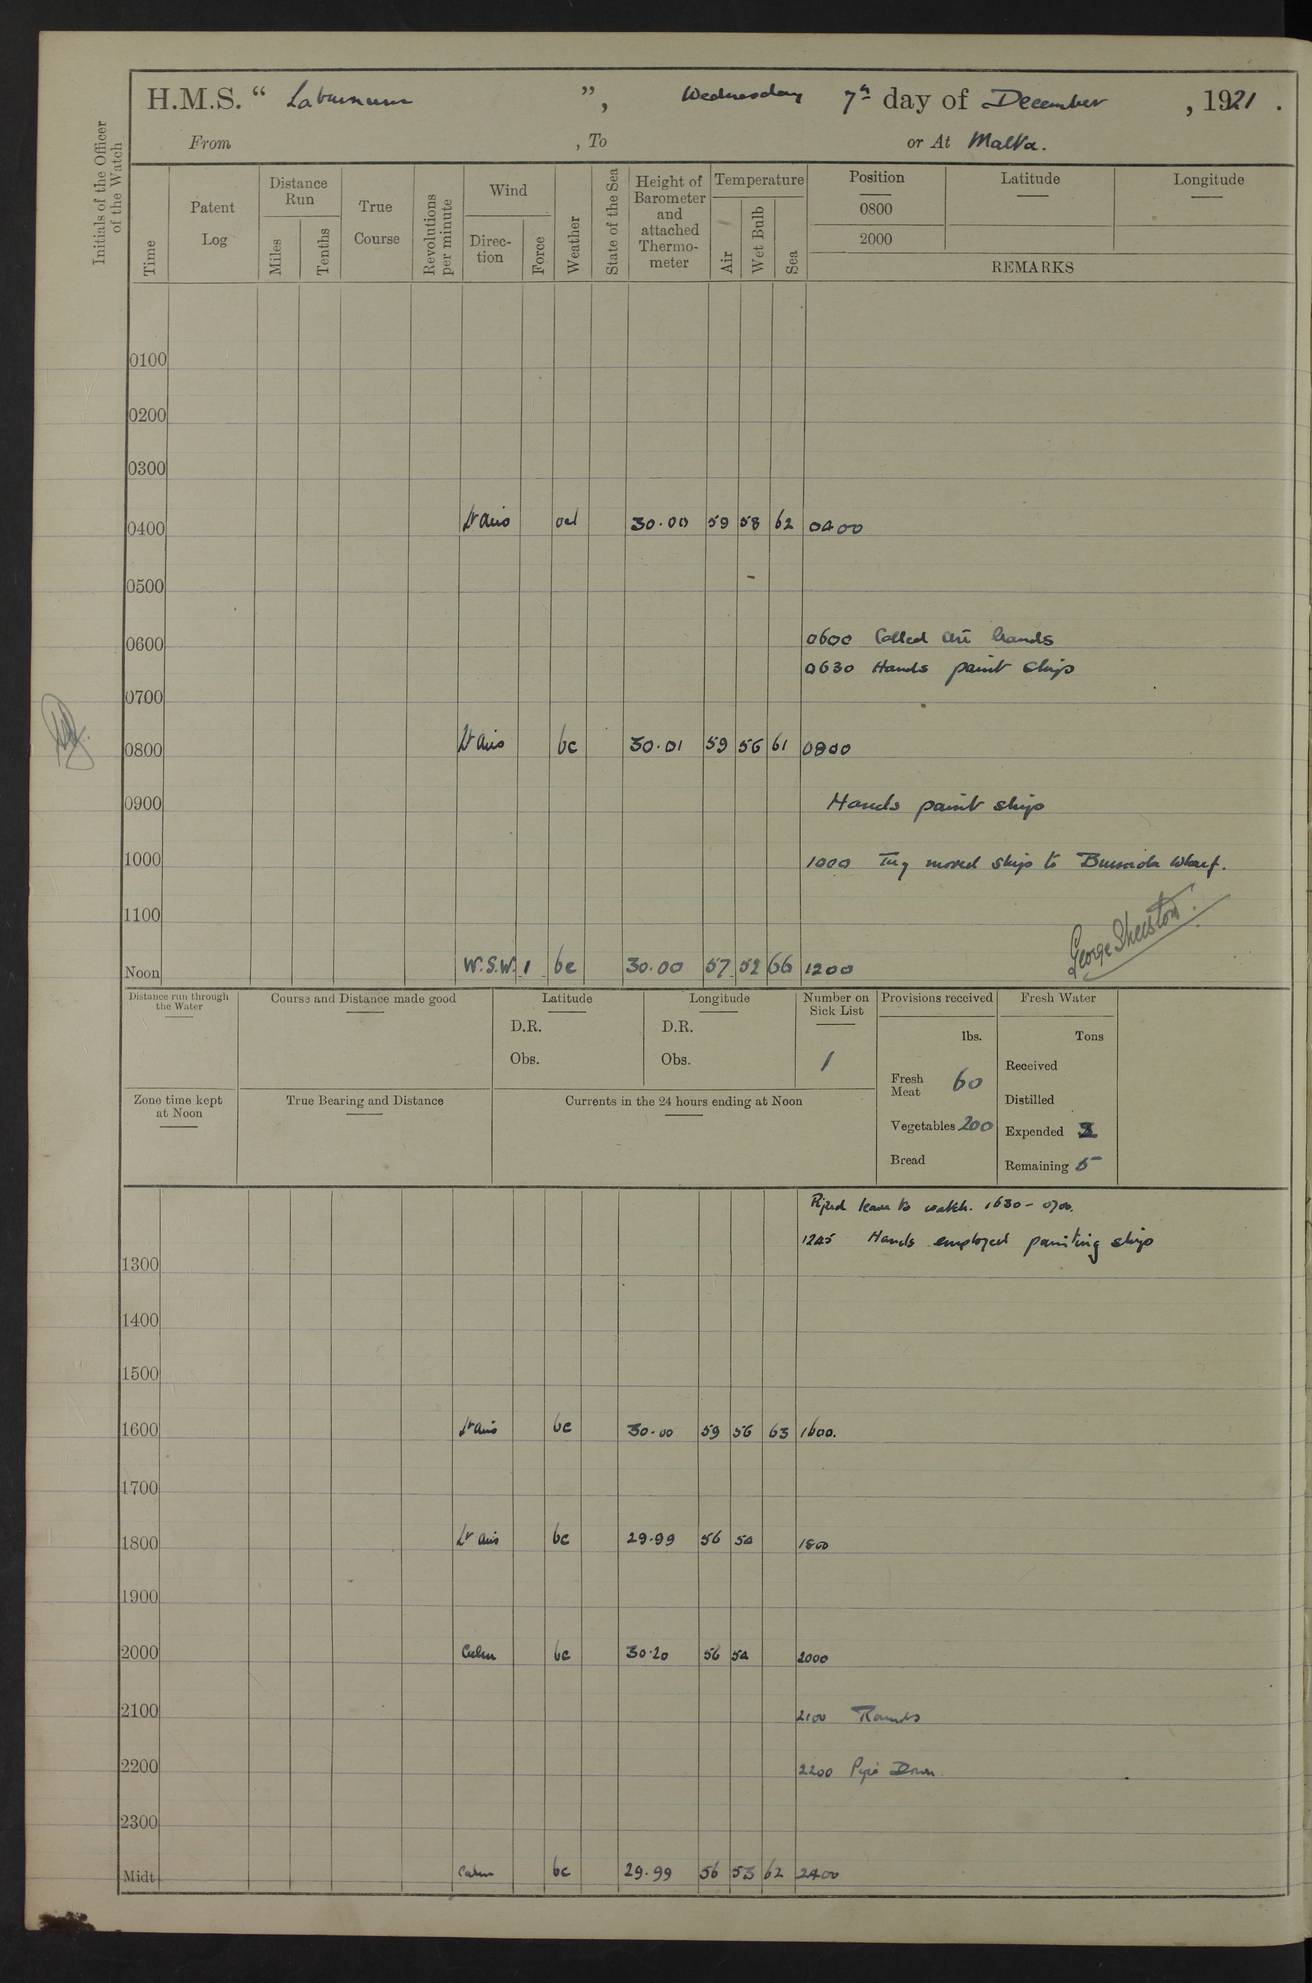 H.M.S. “ Laburnum ”, Wednesday 7th day of December , 1921 .
From , To or At Malta.
Initials of the Officer of the Watch
Time
Patent Log
Distance Run
Miles
Tenths
True Course
Revolutions per minute
Wind
Direc-tion
Force
Weather
State of the Sea
Height of Barometer and attached Thermo-meter
Temperature
Air
Wet Bulb
Sea
Position
0800
2000
Latitude
Longitude
REMARKS
0100
0200
0300
0400 Lt airs 30.00 59 58 62 0400
0500
0600 0600 Called all hands
0630 Hands paint ship
0700
0800 Lt airs bc 30.01 59 56 61 0800
0900 Hands paint ship
1000 1000 Tug moved ship to wharf.
1100
George Sherston.
Noon W.S.W. 1 bc 30.00 57 52 66 1200
Distance run through the Water
Course and Distance made good
Latitude
D.R.
Obs.
Longitude
D.R.
Obs.
Number on Sick List
1
Provisions received
lbs.
Fresh Meat 60
Vegetables 200
Bread
Fresh Water
Tons
Received
Distilled
Expended
Remaining 5
Zone time kept at Noon
True Bearing and Distance
Currents in the 24 hours ending at Noon
Piped leave to watch. 1630 - 0700.
1245 Hands employed painting ship
1300
1400
1500
1600 Lt airs bc 30.00 59 56 63 1600.
1700
1800 Lt airs bc 29.99 56 54 1800
1900
2000 Calm bc 30.20 56 54 2000
2100 2100 Rounds
2200 2200 Pipe Down.
2300
Midt. Calm bc 29.99 56 53 62 2400